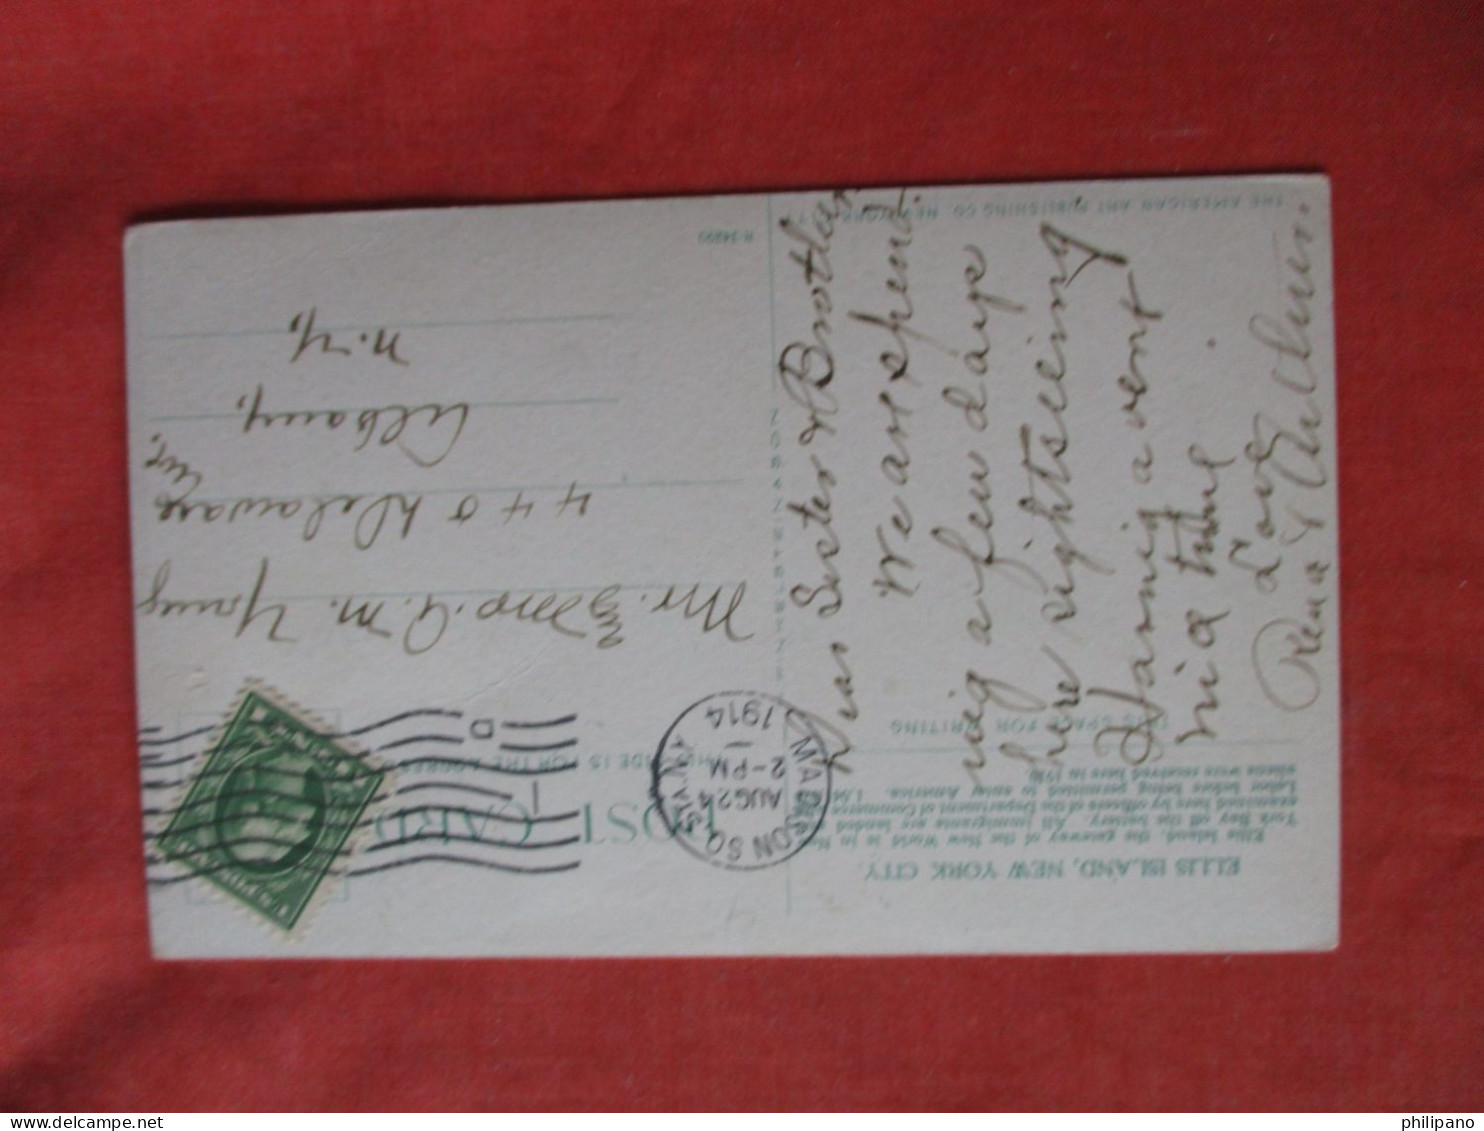 ELLIS ISLAND, NEW YORK CITY.
Ellis Island, the gateway of the New World is in New
York Bay off the battery. All immigrants are landed and
examined here by officers of the Department of Commerce and
Labor before being permitted to enter America.
aliens were received here in 1910
THIS SPACE FOR WRITING
POST CARD
THIS SIDE IS FOR THE ADDRESS
MADISON SQ. STA. N.Y.
AUG 24
2-PM
1914
D
Dear Sister & Brother
We are spend
ing a few days
here sightseeing
Having a vent
rid time.
Love
Rena & Arthur.
Mr. & Mrs. A. M. Young
440 Delaware
Ave.
Albany,
N.Y.
R-34293
THE AMERICAN ART PUBLISHING CO. NEW YORK CITY
philipano